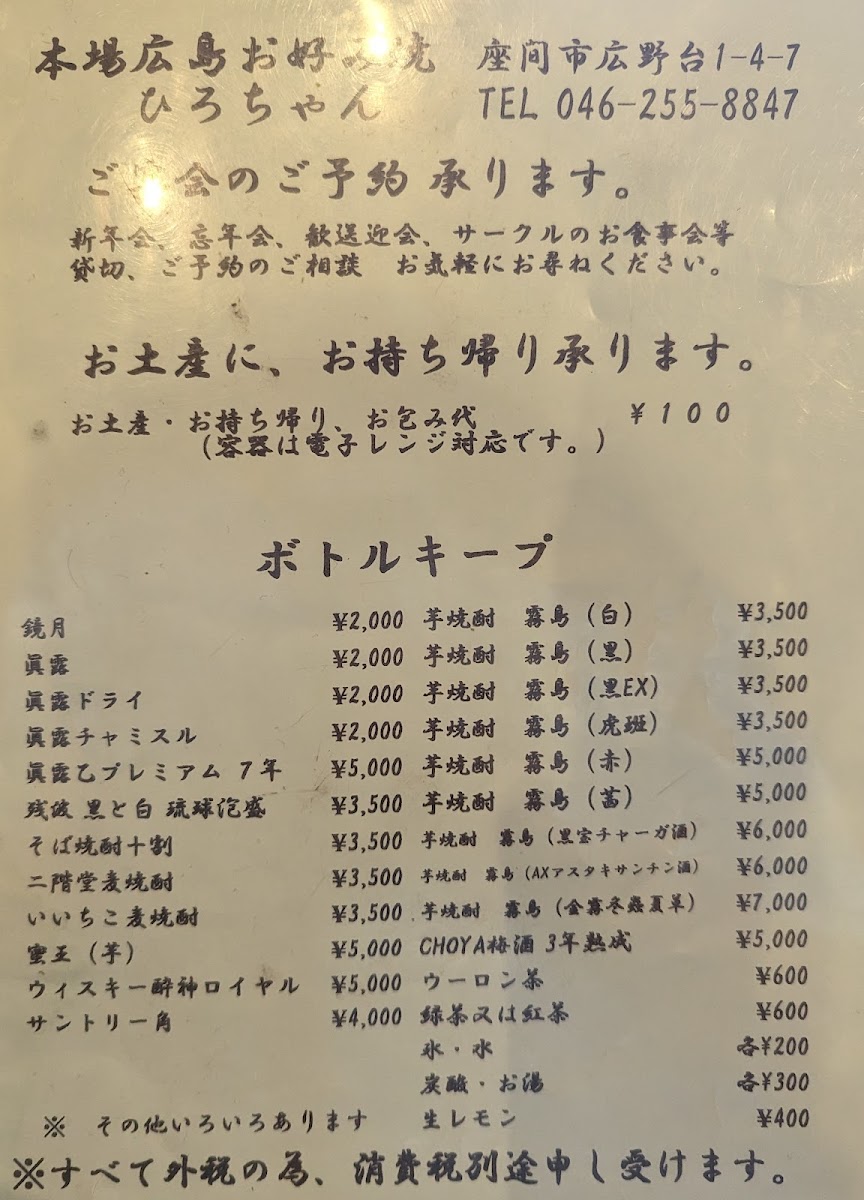 本場広島お好み焼 座間市広野台1-4-7
ひろちゃん TEL 046-255-8847
ご宴会のご予約 承ります。
新年会、忘年会、歓送迎会、サークルのお食事会等
貸切、ご予約のご相談 お気軽にお尋ねください。
お土産に、お持ち帰り承ります。
お土産・お持ち帰り、お包み代 ￥100
(容器は電子レンジ対応です。)
ボトルキープ
鏡月 ¥2,000
眞露 ¥2,000
眞露ドライ ¥2,000
眞露チャミスル ¥2,000
眞露乙プレミアム 7年 ¥5,000
残波 黒と白 琉球泡盛 ¥3,500
そば焼酎十割 ¥3,500
二階堂麦焼酎 ¥3,500
いいちこ麦焼酎 ¥3,500
蜜王 (芋) ¥5,000
ウィスキー酔神ロイヤル ¥5,000
サントリー角 ¥4,000
※ その他いろいろあります
芋焼酎 霧島 (白) ¥3,500
芋焼酎 霧島 (黒) ¥3,500
芋焼酎 霧島 (黒EX) ¥3,500
芋焼酎 霧島 (虎斑) ¥3,500
芋焼酎 霧島 (赤) ¥5,000
芋焼酎 霧島 (茜) ¥5,000
芋焼酎 霧島 (黒宝チャーガ酒) ¥6,000
芋焼酎 霧島 (AXアスタキサンチン酒) ¥6,000
芋焼酎 霧島 (金霧冬蟲夏草) ¥7,000
CHOYA梅酒 3年熟成 ¥5,000
ウーロン茶 ¥600
緑茶又は紅茶 ¥600
氷・水 各¥200
炭酸・お湯 各¥300
生レモン ¥400
※すべて外税の為、消費税別途申し受けます。